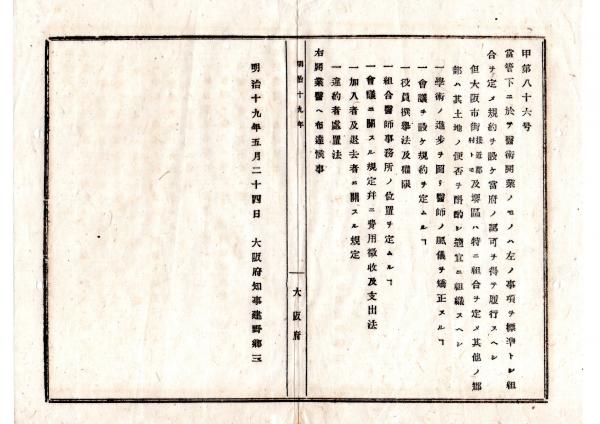 甲第八十六号
當管下ニ於テ醫術開業ノモノハ左ノ事項ヲ標準トシ組
合ヲ定メ規約ヲ設ケ當府ノ認可ヲ得テ履行スヘシ
但大阪市街接近郡村トモ及堺區ハ特ニ組合ヲ定メ其他ノ郡
部ハ其土地ノ便否ヲ酌シ適宜ニ組織スヘシ
一學術ノ進歩ヲ圖リ醫師ノ風儀ヲ矯正スルヿ
一會議ヲ設ケ規約ヲ定ムルヿ
一役員撰擧法及權限
一組合醫師事務所ノ位置ヲ定ムルヿ
一會議ニ關スル規定幷ニ費用徵收及支出法
一加入者及退去者ニ關スル規定
一違約者處置法
右開業醫ヘ布達候事
明治十九年
大阪府
明治十九年五月二十四日　大阪府知事建野鄕三